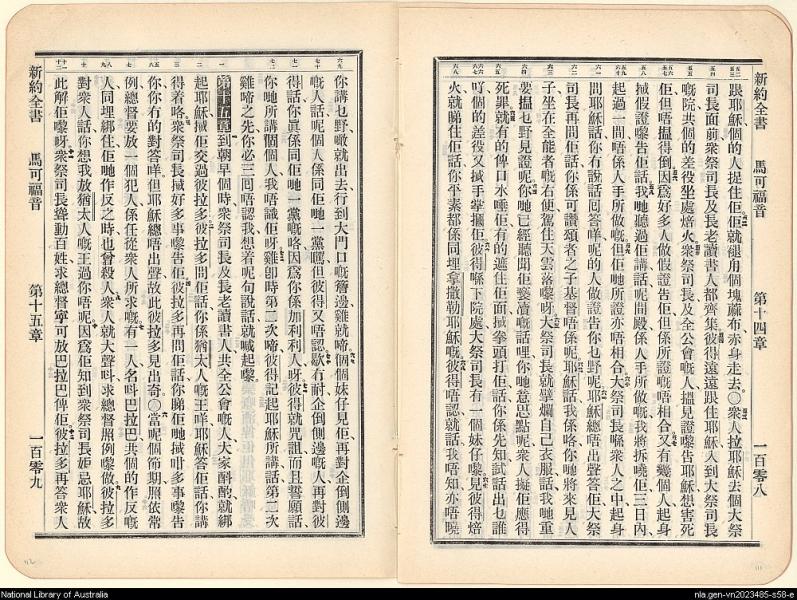 新約全書 馬可福音 第十四章 一百零八
跟耶穌個的人捉住佢佢就褪甪個塊蔴布赤身走去〇衆人拉耶穌去個大祭
司長面前衆祭司長及長老讀書人都齊集彼得遠遠跟住耶穌入到大祭司長
嘅院共個的差役坐處焙火衆祭司長及全公會嘅人搵見證嚟告耶穌想害死
佢但唔搵得倒因爲好多人做假證告佢但係所證嘅唔相合又有幾個人起身
揻假證嚟告佢話我哋聽過佢講話呢間殿係人手所做嘅我將拆曉佢三日內
起過一間唔係人手所做嘅但佢哋所證亦唔相合大祭司長喺衆人之中起身
問耶穌話你有說話囘答咩呢的人做證告你乜野呢耶穌總唔出聲答佢大祭
司長再問佢話你係可讚頌者之子基督唔係呢耶穌話我係咯你哋將來見人
子坐在全能者嘅右便駕住天雲落嚟呀大祭司長就擘爛自己衣服話我哋重
要搵乜野見證呢你哋已經聽聞佢褻瀆嘅話哩你哋意思點呢衆人擬佢應得
死罪就有的俾口水唾佢有的遮住佢面揻拳頭打佢話你係先知試話出乜誰
吖個的差役又揻手掌摑佢彼得喺下院處大祭司長有一個妹仔嚟見彼得焙
火就睇住佢話你平素都係同埋拿撒勒耶穌嘅彼得唔認就話我唔知亦唔曉
你講乜野噉就出去行到大門口嘅簷邊雞就啼個個妹仔見佢再對企倒側邊
嘅人話呢個人係同佢哋一黨嘅但彼得又唔認歇有耐企倒側邊嘅人再對彼
得話你眞係同佢哋一黨嘅咯因爲你係加利利人呀彼得就咒詛而且誓願話
你哋所講個個人我唔識佢呀雞卽時第二次啼彼得記起耶穌所講話第二次
雞啼之先你必三囘唔認我想着呢句說話就喊起嚟
第十五章到朝早個時衆祭司長及長老讀書人共全公會嘅人大家斟酌就綁
起耶穌揻佢交過彼拉多彼拉多問佢話你係猶太人嘅王咩耶穌答佢話你講
得着咯衆祭司長揻好多事嚟告佢彼拉多再問佢話你睇佢哋揻咁多事嚟告
你你有的對答咩但耶穌總唔出聲故此彼拉多見出奇〇當呢個節期照依常
例總督要放一個犯人係任從衆人所求嘅有一人名呌巴拉巴共個的作反嘅
人同埋綁住佢哋作反之時也曾殺人衆人就大聲呌求總督照例嚟做彼拉多
對衆人話你想我放猶太人嘅王過你唔呢因爲佢知到衆祭司長妬忌耶穌故
此解佢嚟呀衆祭司長聳動百姓求總督寧可放巴拉巴俾佢彼拉多再答衆人
新約全書 馬可福音 第十五章 一百零九
National Library of Australia
nla.gen-vn2023485-s58-e